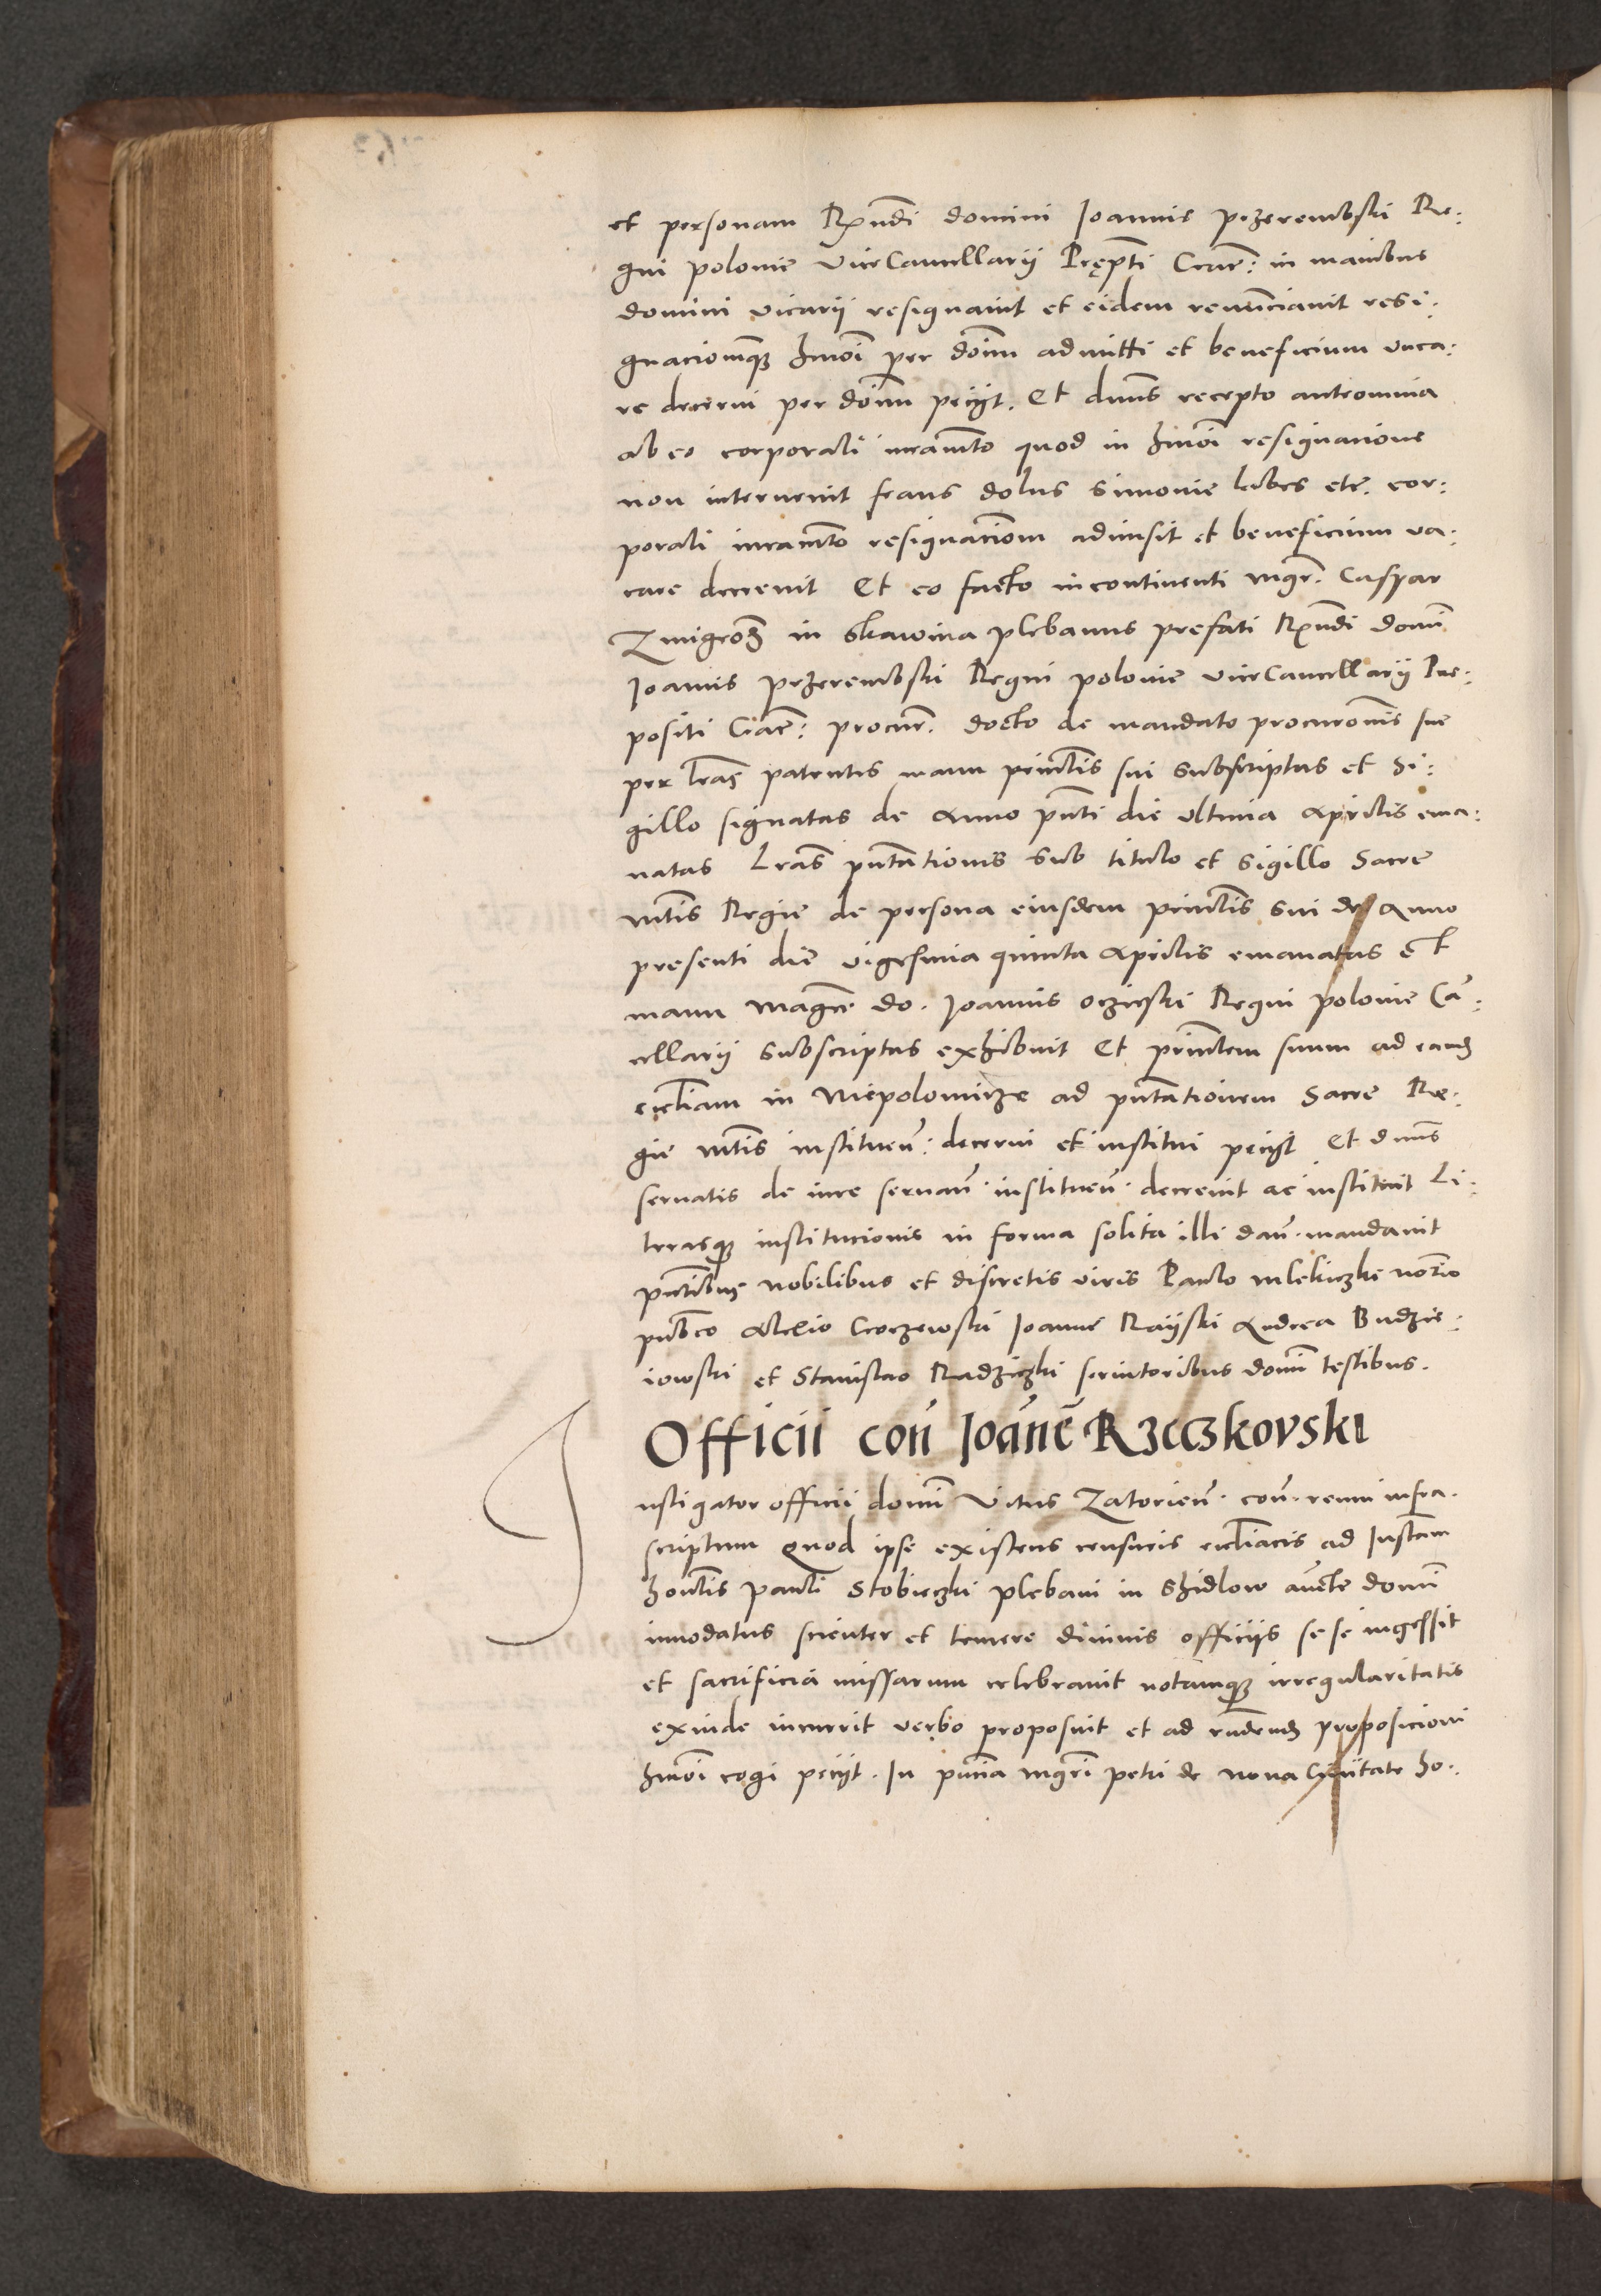 et personam Rx̃ndi domini Joannis przerembski Re:
gni polonie viceCancellarij Pręp̃ti Crac̃: in manibus
domini vicarij resignavit et eidem renunciavit resi:
gnacionemq3 hmõi per doĩm admitti et beneficium vaca:
re decerni per doĩm pecijt. Et dnũs recepto anteomnia
ab eo corporali iuramẽto quod in hmõi resignacione
non intervenit fraus dolus simonie labes etc̃. cor:
porali iuramẽto resignaciõem admisit et beneficium va:
care decrevit Et eo facto incontinenti mgr̃. Caspar
Zmigrod3 in Skawina plebanus prefati Rx̃ndi domĩ
Joannis przerembski Regni polonie viceCancellarij Pre:
positi Crac̃: procur̃. docto de mandato procuroñis sue
per lrãs patentes manu princĩlis sui subscriptas et si:
gillo signatas de anno pñti die ultima Aprilis ema:
natas Lrãs pñtãtionis sub titulo et sigillo Sacre
mtĩs Regie de persona eiusdem princĩlis sui de Anno
presenti die vigesima quinta Aprilis emanatas et
manu Magcĩ do. Joannis oczieski Regni polonie Cã:
cellarij subscriptas exhibuit Et princĩlem suum ad eand3
ecclĩam in Niepolomicze ad pñtãtionem Sacre Re:
gie mtĩs instituen̄: decerni et institui pecijt Et dnũs
servatis de iure servan̄. instituen̄. decrevit ac instituit Li:
terasq3 institucionis in forma solita illi dan̄. mandavit
pñtibus nobilibus et discretis viris Paulo mlekiczke notrĩo
pubco Alexio Croczewski Joanne Rayski Andrea Budzie:
iowski et Stanislao Radziczki scriptoribus domĩ testibus.
Officii con̄ Joãnẽ Rzeczkovski
Instigator officij domĩ Vitus Zatorien̄. con̄. reum infra.
scriptum Quod ipse existens censuris ecclĩacis ad Instam̃
honlĩs pauli Stobieczki plebani in Szidlow autẽ domĩ
innodatus scienter et temere divinis officijs se se ingessit
et sacrificia missarum celebravit notamq3 irregularitatis
exinde incurrit verbo proposuit et ad rñdend3 proposicioni
hmõi cogi pecijt. In pñcia mgrĩ petri de nova Civitate ho: